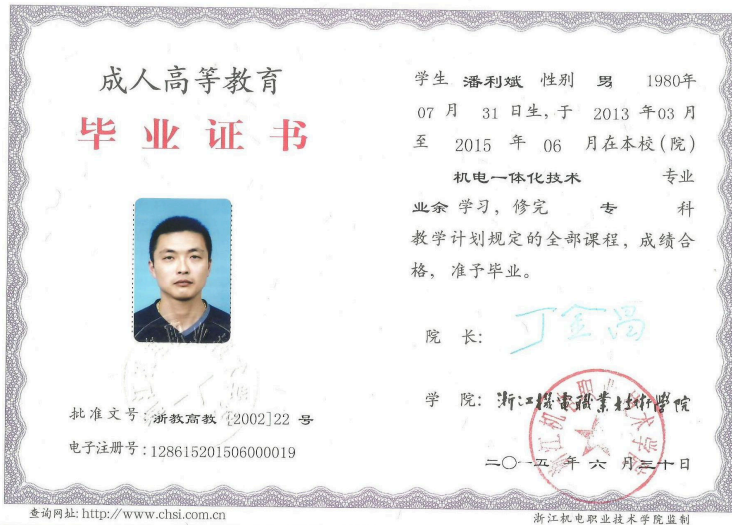 成人高等教育
毕业证书
批准文号:浙教高教 [2002]22 号
电子注册号:128615201506000019
查询网址:http://www.chsi.com.cn
学生 潘利斌 性别 男 1980年
07 月 31 日生,于 2013 年03 月
至 2015 年 06 月在本校(院)
机电一体化技术 专业
业余 学习,修完 专 科
教学计划规定的全部课程,成绩合
格,准予毕业。
院 长: 丁金昌
学 院: 浙江機電職業技術學院
浙江机电职业技术学院
二〇一五 年 六 月三十日
浙江机电职业技术学院监制